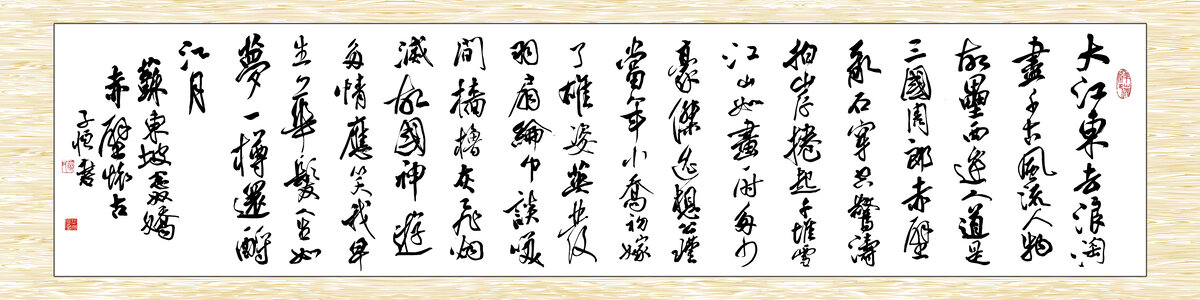 大江東去浪淘
盡千古風流人物
故壘西邊人道是
三國周郎赤壁
亂石穿空驚濤
拍岸捲起千堆雪
江山如畫一时多少
豪傑遥想公瑾
當年小喬初嫁
了雄姿英發
羽扇綸巾談笑
間檣櫓灰飛烟
滅故國神遊
多情應笑我早
生華髮人生如
夢一樽還酹
江月
蘇東坡念奴嬌
赤壁懷古
子恒書